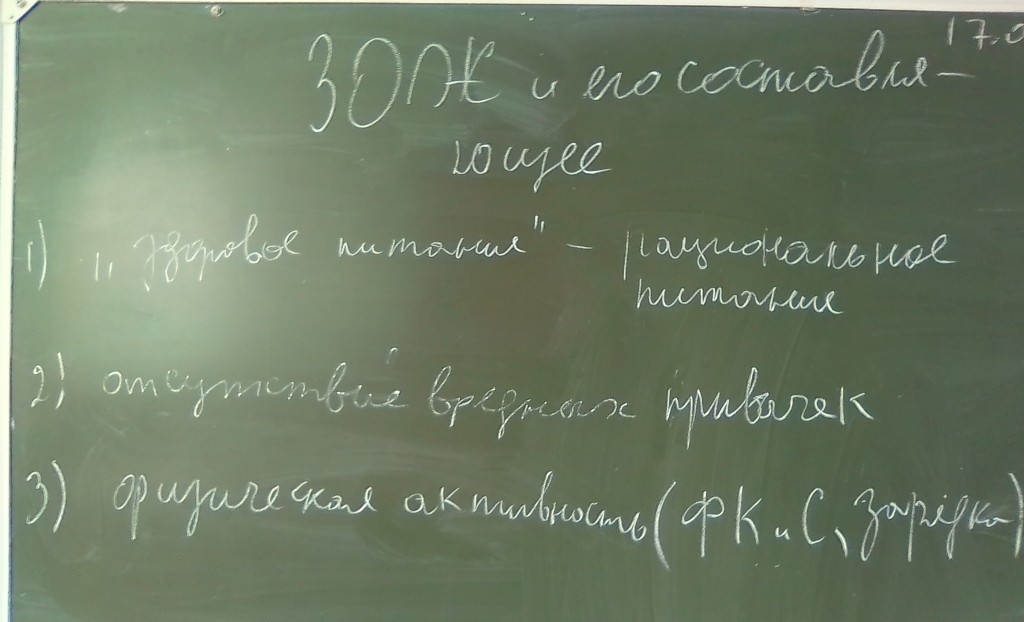 17.0
ЗОЖ и его составля-
ющее
1) „здоровое питание" – рациональное
питание
2) отсутствие вредных привычек
3) физическая активность (ФК и С, зарядка)